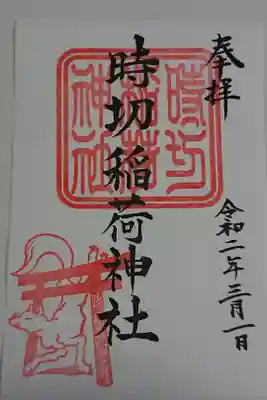 奉拝
時切稲荷神社
令和二年三月一日
時切
稲荷
神社